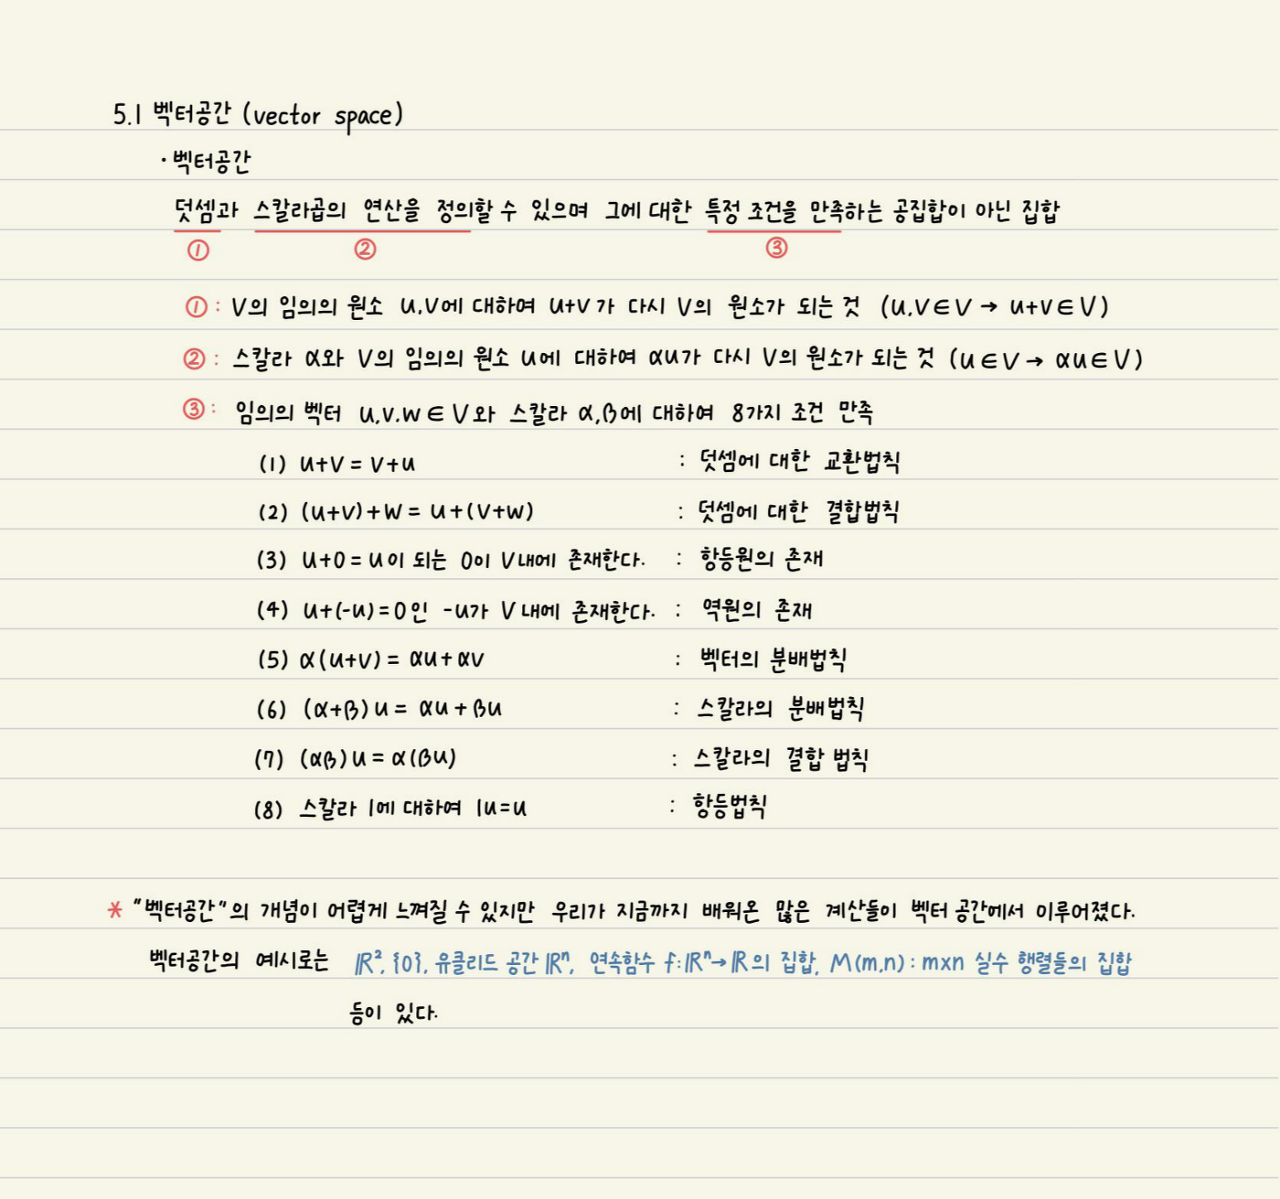 5.1 벡터공간 (vector space)
· 벡터공간
덧셈과 스칼라곱의 연산을 정의할 수 있으며 그에 대한 특정 조건을 만족하는 공집합이 아닌 집합
① ② ③
① : V의 임의의 원소 u,v에 대하여 u+v가 다시 V의 원소가 되는 것 (u,v∈V → u+v∈V)
② : 스칼라 α와 V의 임의의 원소 u에 대하여 αu가 다시 V의 원소가 되는 것 (u∈V → αu∈V)
③ : 임의의 벡터 u,v,w∈V와 스칼라 α,β에 대하여 8가지 조건 만족
(1) u+v = v+u : 덧셈에 대한 교환법칙
(2) (u+v)+w = u+(v+w) : 덧셈에 대한 결합법칙
(3) u+0 = u이 되는 0이 V내에 존재한다. : 항등원의 존재
(4) u+(-u)=0인 -u가 V내에 존재한다. : 역원의 존재
(5) α(u+v) = αu+αv : 벡터의 분배법칙
(6) (α+β)u = αu+βu : 스칼라의 분배법칙
(7) (αβ)u = α(βu) : 스칼라의 결합 법칙
(8) 스칼라 1에 대하여 1u=u : 항등법칙
* "벡터공간"의 개념이 어렵게 느껴질 수 있지만 우리가 지금까지 배워온 많은 계산들이 벡터 공간에서 이루어졌다.
벡터공간의 예시로는 ℝ², {0}, 유클리드 공간 ℝⁿ, 연속함수 f:ℝⁿ→ℝ의 집합, M(m,n) : m×n 실수 행렬들의 집합
등이 있다.